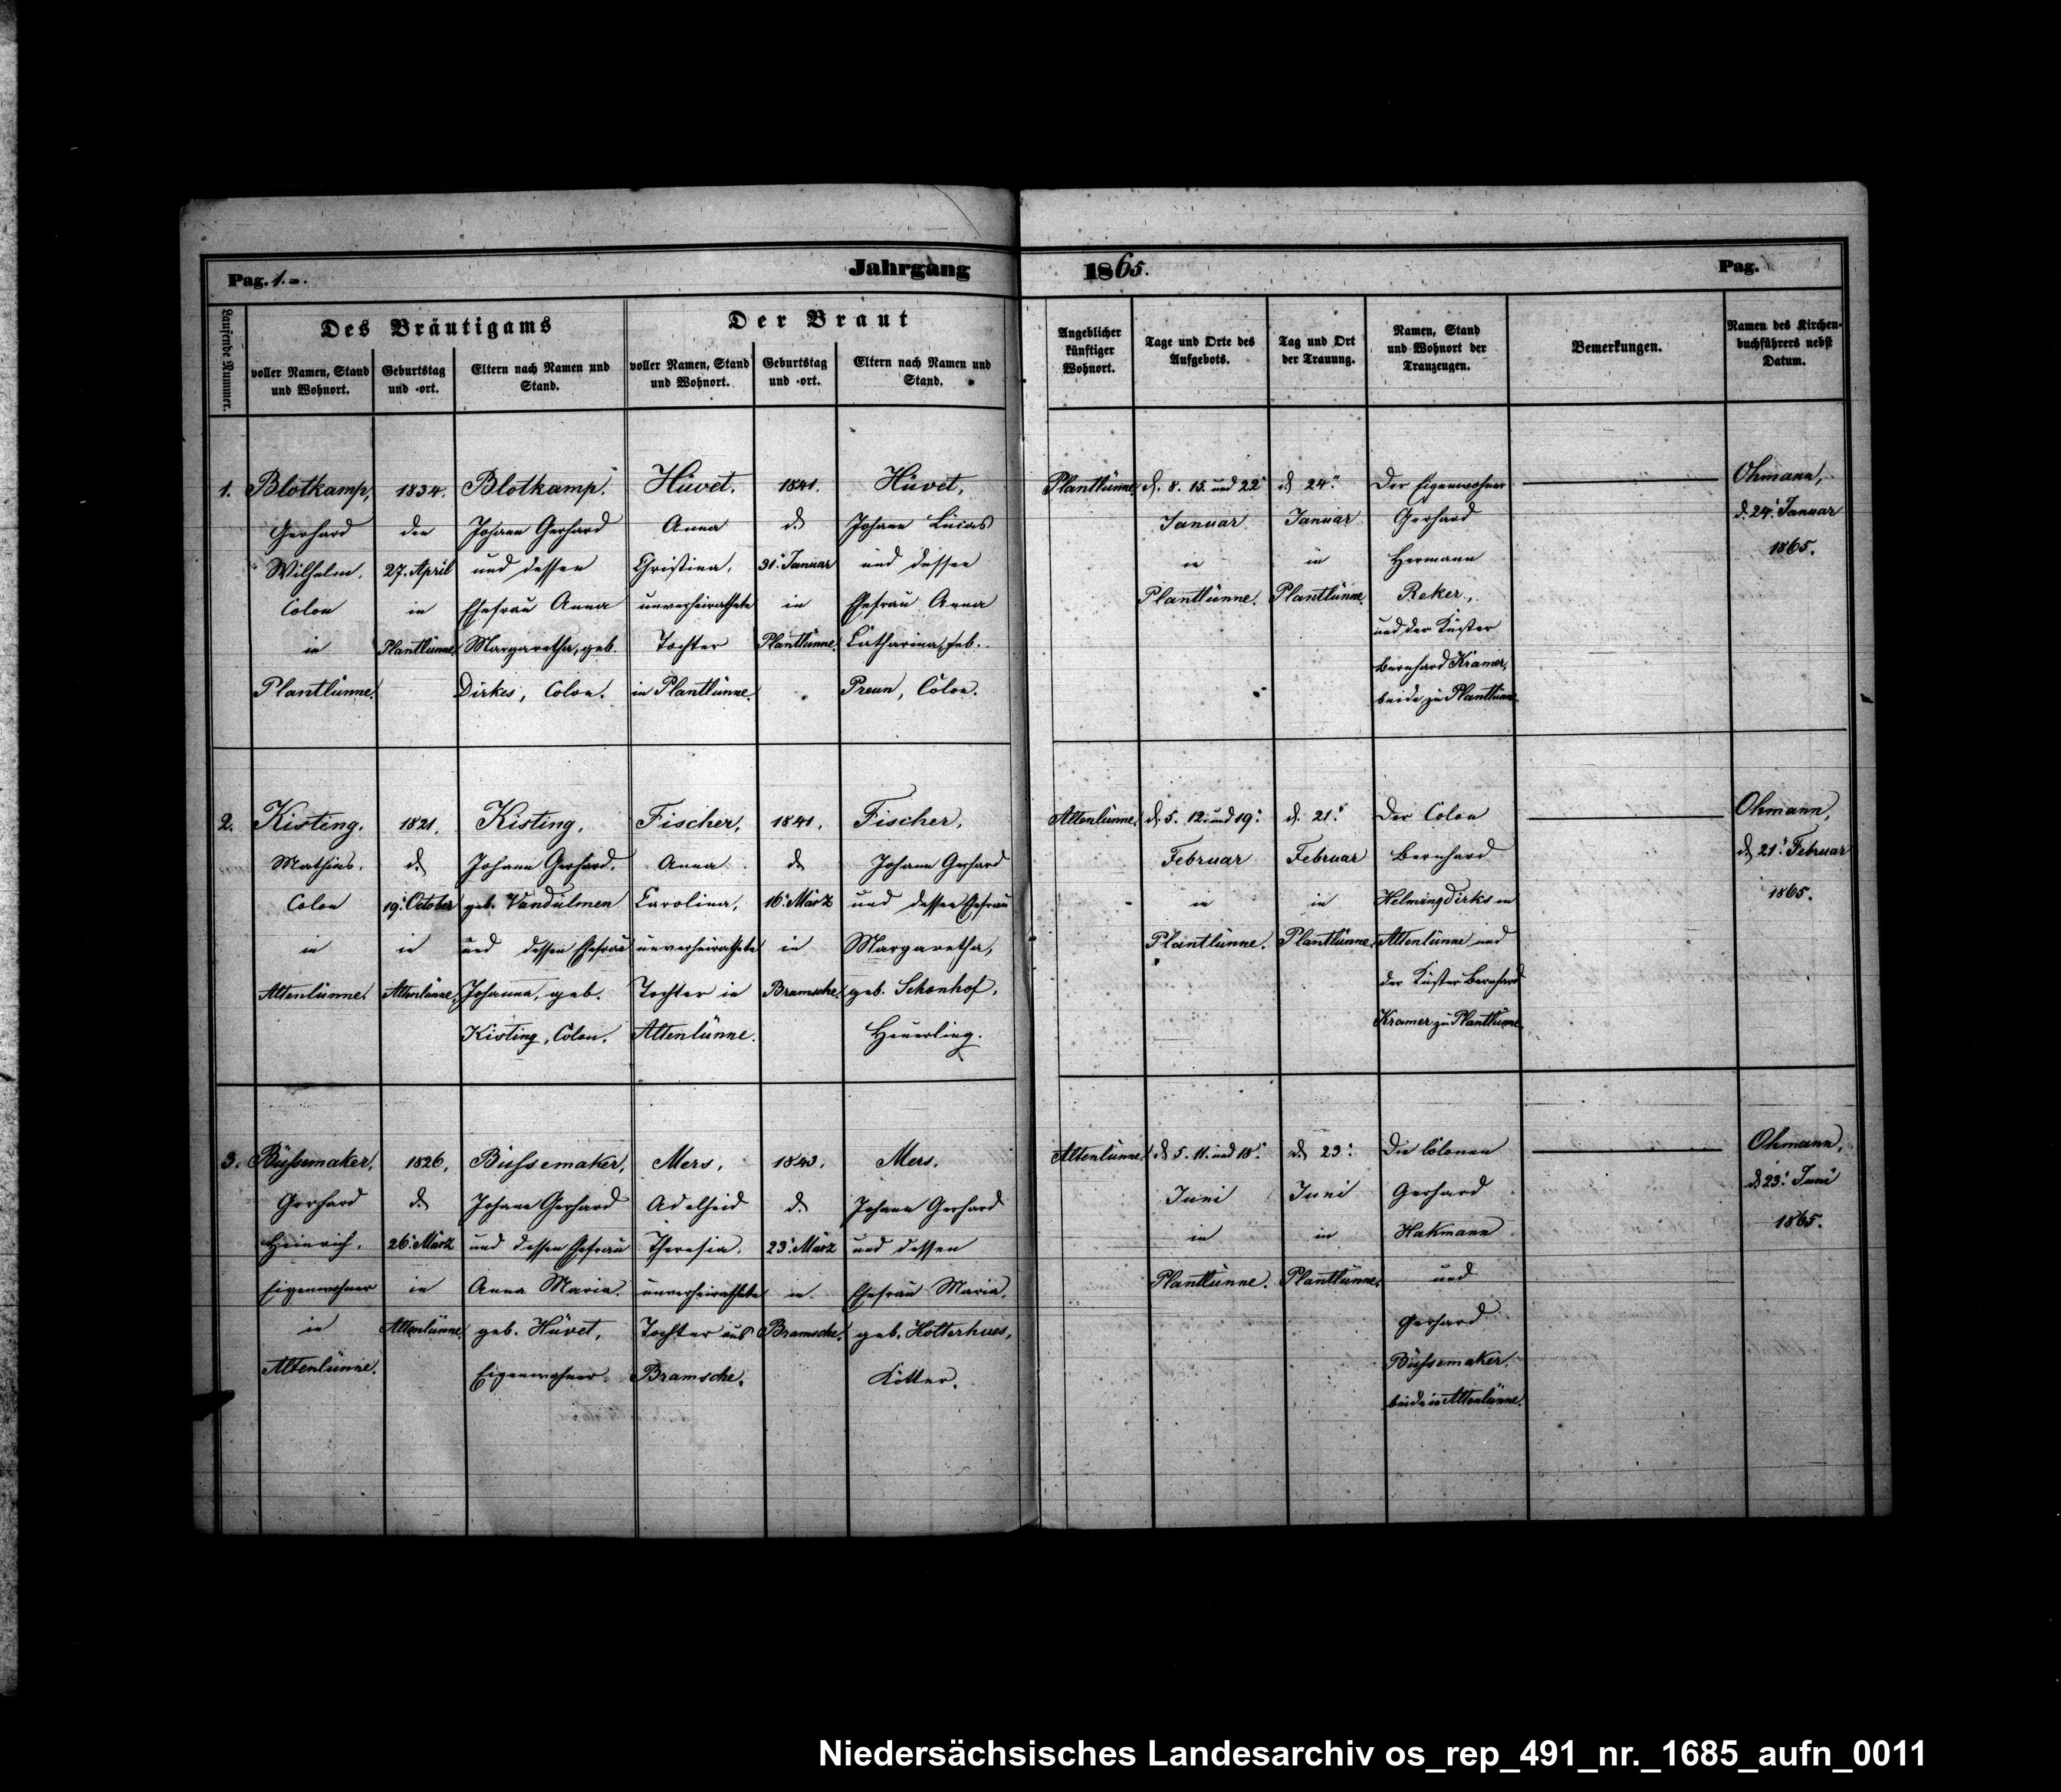 Pag. 1.
Jahrgang
1865.
Pag.
Laufende Nummer.
Des Bräutigams
voller Namen, Stand
und Wohnort.
Geburtstag
und -ort.
Eltern nach Namen und
Stand.
Der Braut
voller Namen, Stand
und Wohnort.
Geburtstag
und -ort.
Eltern nach Namen und
Stand.
Angeblicher
künftiger
Wohnort.
Tage und Orte des
Aufgebots.
Tag und Ort
der Trauung.
Namen, Stand
und Wohnort der
Trauzeugen.
Bemerkungen.
Namen des Kirchen-
buchführers nebst
Datum.
1.
Blotkamp,
Gerhard
Wilhelm,
Colon
in
Plantlünne.
1834.
den
27. April
in
Plantlünne.
Blotkamp,
Johann Gerhard
und dessen
Ehefrau Anna
Margaretha, geb.
Dirkes, Colon.
Hüvet,
Anna
Christina,
unverheirathete
Tochter
in Plantlünne.
1841.
d.
31. Januar
in
Plantlünne.
Hüvet,
Johann Lucas
und dessen
Ehefrau Anna
Catharina, geb.
Preun, Colon.
Plantlünne.
d. 8. 15. und 22.
Januar
in
Plantlünne.
d. 24.
Januar
in
Plantlünne.
Der Eigenwohner
Gerhard
Hermann
Reker,
und der Küster
Bernhard Kramer,
beide zu Plantlünne.
Ohmann,
d. 24. Januar
1865.
2.
Kisting,
Mathias,
Colon
in
Altenlünne.
1821.
d.
19. October
in
Altenlünne.
Kisting,
Johann Gerhard,
geb. Vandülmen
und dessen Ehefrau
Johanna, geb.
Kisting, Colon.
Fischer,
Anna
Carolina,
unverheirathete
Tochter in
Altenlünne.
1841.
d.
16. März
in
Bramsche.
Fischer,
Johann Gerhard
und dessen Ehefrau
Margaretha,
geb. Schonhof,
Heuerling.
Altenlünne.
d. 5. 12. und 19.
Februar
in
Plantlünne.
d. 21.
Februar
in
Plantlünne.
Der Colon
Bernhard
Helming Dirks in
Altenlünne und
der Küster Bernhard
Kramer zu Plantlünne.
Ohmann,
d. 21. Februar
1865.
3.
Büssemaker,
Gerhard
Heinrich,
Eigenwohner
in
Altenlünne.
1826.
d.
26. März
in
Altenlünne.
Büssemaker,
Johann Gerhard
und dessen Ehefrau
Anna Maria,
geb. Hüvet,
Eigenwohner.
Mers,
Adelheid
Theresia,
unverheirathete
Tochter aus
Bramsche.
1843.
d.
23. März
in
Bramsche.
Mers,
Johann Gerhard
und dessen
Ehefrau Maria,
geb. Holterhues,
Kötter.
Altenlünne.
d. 5. 11. und 18.
Juni
in
Plantlünne.
d. 23.
Juni
in
Plantlünne.
Die Colonen
Gerhard
Hakmann
und
Gerhard
Büssemaker
beide in Altenlünne.
Ohmann,
d. 23. Juni
1865.
Niedersächsisches Landesarchiv os_rep_491_nr._1685_aufn_0011